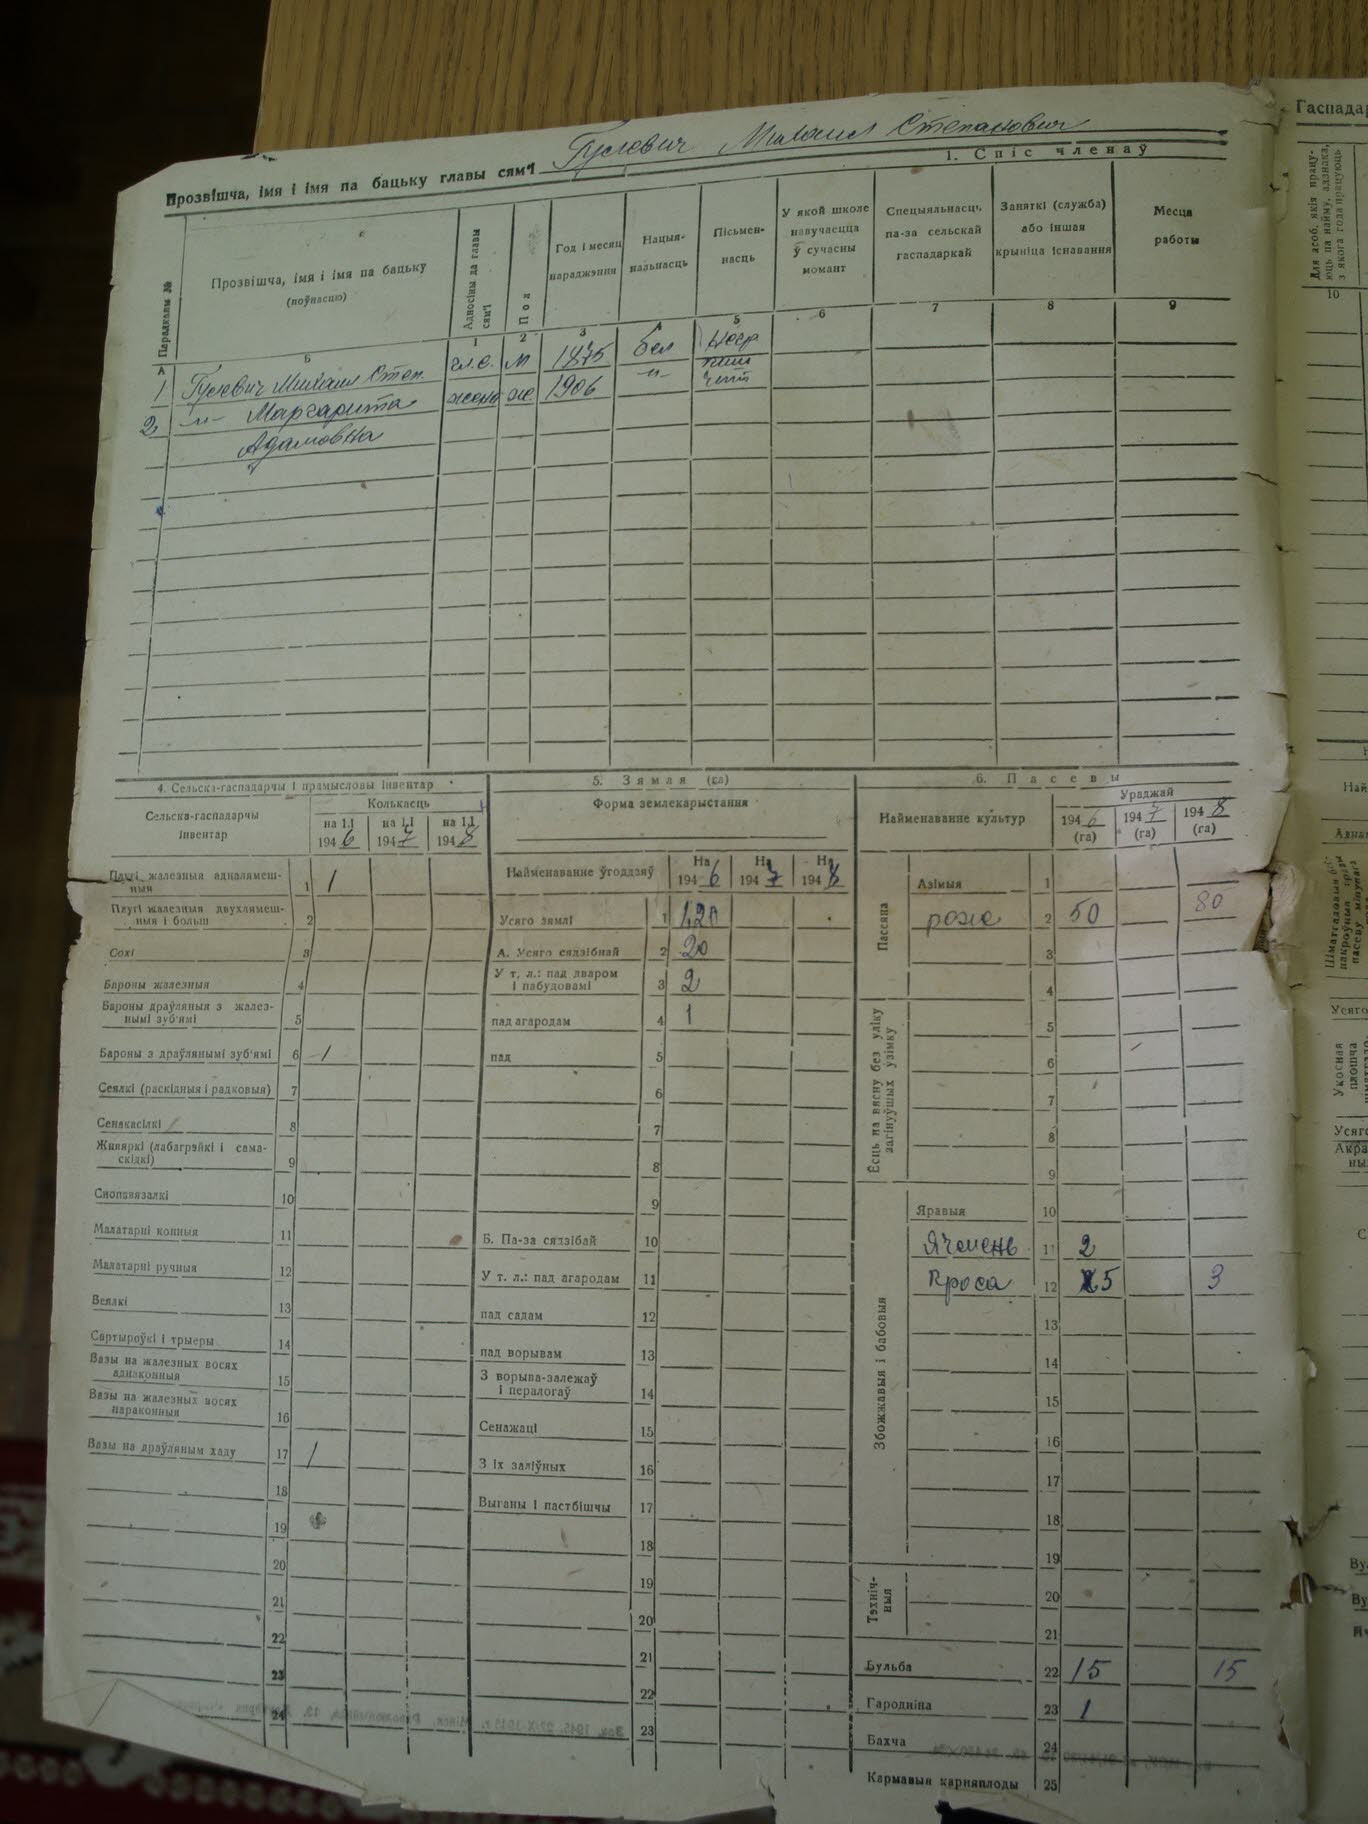 Прозвішча, імя і імя па бацьку главы сям'і Гулевич Михаил Степанович
1. Спіс членаў
Парадкавы №
Прозвішча, імя і імя па бацьку
(поўнасцю)
Адносіны да главы сям'і
Пол
Год і месяц нараджэння
Нацыянальнасць
Пісьменнасць
У якой школе навучаецца ў сучасны момант
Спецыяльнасць па-за сельскай гаспадаркай
Заняткі (служба) або іншая крыніца існавання
Месца работы
А Б 1 2 3 4 5 6 7 8 9
1 Гулевич Михаил Степ. гл.с. м 1875 бел негр
2 -"- Маргарита жена ж 1906 -"-
Адамовна
4. Сельска-гаспадарчы і прамысловы інвентар
Сельска-гаспадарчы інвентар
Колькасць
на 1.I 1946 на 1.I 1947 на 1.I 1948
Плугі жалезныя адналямешныя 1 1
Плугі жалезныя двухлямешныя і больш 2
Сохі 3
Бароны жалезныя 4
Бароны драўляныя з жалезнымі зуб'ямі 5
Бароны з драўлянымі зуб'ямі 6 1
Сеялкі (раскідныя і радковыя) 7
Сенакасілкі 8
Жняяркі (лабагрэйкі і самаскідкі) 9
Снопавязалкі 10
Малатарні конныя 11
Малатарні ручныя 12
Веялкі 13
Сартыроўкі і трыеры 14
Вазы на жалезных восях аднаконныя 15
Вазы на жалезных восях параконныя 16
Вазы на драўляным хаду 17 1
18
19
20
21
22
23
24
5. Зямля (га)
Форма землекарыстання
Найменаванне ўгоддзяў
На 1946 На 1947 На 1948
Усяго зямлі 1 1,20
А. Усяго сядзібнай 2 20
У т. л.: пад дваром і пабудовамі 3 2
пад агародам 4 1
пад 5
6
7
8
9
Б. Па-за сядзібай 10
У т. л.: пад агародам 11
пад садам 12
пад ворывам 13
З ворыва-залежаў і пералогаў 14
Сенажаці 15
З іх заліўных 16
Выганы і пастбішчы 17
18
19
20
21
22
23
6. Пасевы
Найменаванне культур
Ураджай
1946 (га) 1947 (га) 1948 (га)
Пасеяна
Азімыя 1
рожь 2 50 80
3
4
Ёсць на вясну без уліку загінуўшых узімку
5
6
7
8
9
Збожжавыя і бабовыя
Яравыя 10
Ячмень 11 2
Проса 12 5 3
13
14
15
16
17
18
19
Тэхнічныя
20
21
Бульба 22 15 15
Гародніна 23 1
Бахча 24
Кармавыя карняплоды 25
Гаспадар
Для асоб, якія працуюць па найму, адзнака, з якога года працуюць
10